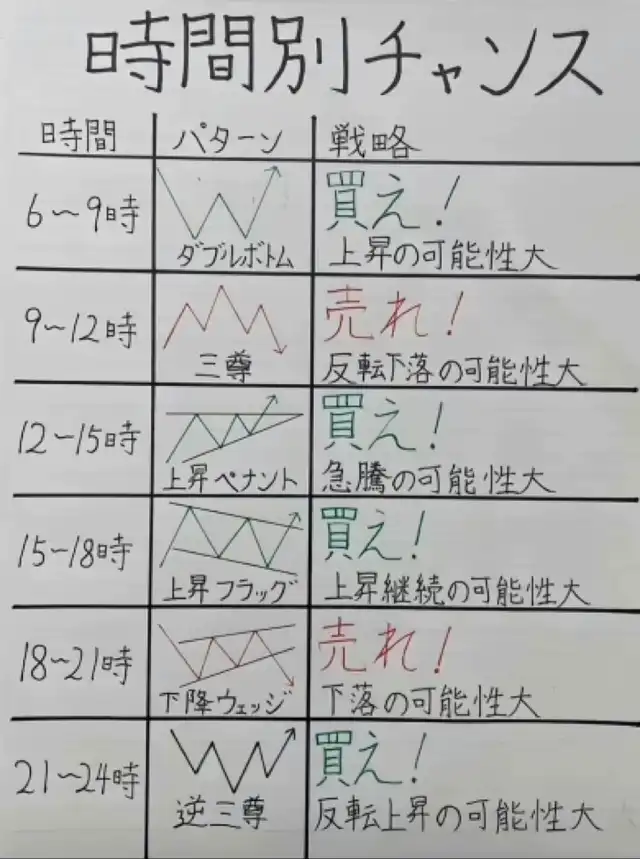 時間別チャンス
時間 パターン 戦略
6〜9時 ダブルボトム 買え!
上昇の可能性大
9〜12時 三尊 売れ!
反転下落の可能性大
12〜15時 上昇ペナント 買え!
急騰の可能性大
15〜18時 上昇フラッグ 買え!
上昇継続の可能性大
18〜21時 下降ウェッジ 売れ!
下落の可能性大
21〜24時 逆三尊 買え!
反転上昇の可能性大